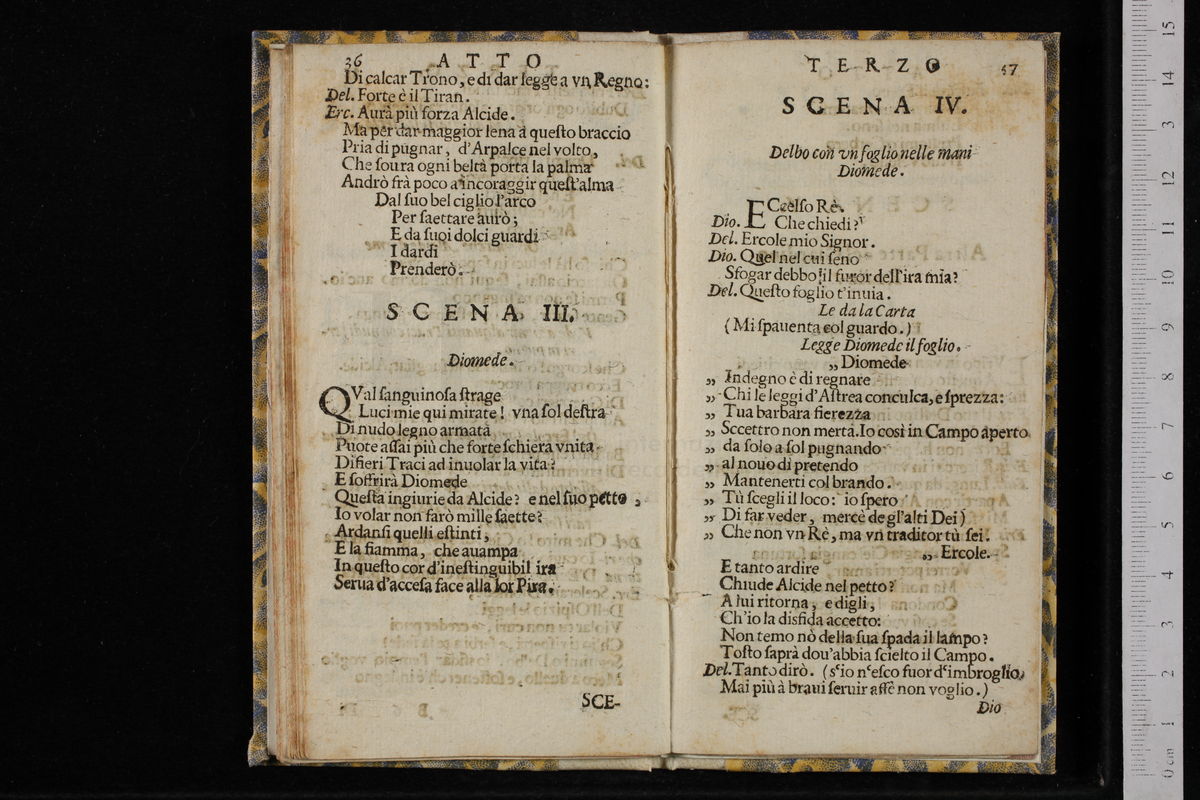 36 ATTO
Di calcar Trono, e di dar legge a vn Regno:
Del. Forte è il Tiran.
Erc. Aurà più forza Alcide.
Ma per dar maggior lena à queſto braccio
Pria di pugnar, d'Arpalce nel volto,
Che ſoura ogni beltà porta la palma
Andrò frà poco a incoraggir queſt'alma
Dal ſuo bel ciglio l'arco
Per ſaettare aurò;
E da ſuoi dolci guardi
I dardi
Prenderò.
SCENA III.
Diomede.
QVal ſanguinoſa ſtrage
Luci mie qui mirate! vna ſol deſtra
Di nudo legno armata
Puote aſſai più che forte ſchiera vnita
Di fieri Traci ad inuolar la vita?
E ſoffrirà Diomede
Queſta ingiurie da Alcide? e nel ſuo petto,
Io volar non farò mille ſaette?
Ardanſi quelli eſtinti,
E la fiamma, che auampa
In queſto cor d'ineſtinguibil ira
Serua d'acceſa face alla lor Pira.
SCE-
TERZO 47
SCENA IV.
Delbo con vn foglio nelle mani
Diomede.
ECcelſo Rè.
Dio. Che chiedi?
Del. Ercole mio Signor.
Dio. Quel nel cui ſeno
Sfogar debbo il furor dell'ira mia?
Del. Queſto foglio t'inuia.
Le da la Carta
(Mi ſpauenta col guardo.)
Legge Diomede il foglio.
„ Diomede
„ Indegno è di regnare
„ Chi le leggi d'Aſtrea conculca, e ſprezza:
„ Tua barbara fierezza
„ Sccettro non merta. Io così in Campo aperto
„ da ſolo a ſol pugnando
„ al nouo di pretendo
„ Mantenerti col brando.
„ Tù ſcegli il loco: io ſpero
„ Di far veder, mercè de gl'alti Dei)
„ Che non vn Rè, ma vn traditor tù ſei.
„ Ercole.
E tanto ardire
Chiude Alcide nel petto?
A lui ritorna, e digli,
Ch'io la disfida accetto:
Non temo nò della ſua ſpada il lampo?
Toſto ſaprà dou'abbia ſcielto il Campo.
Del. Tanto dirò. (s'io n'eſco fuor d'imbroglio,
Mai più à braui ſeruir affè non voglio.)
Dio